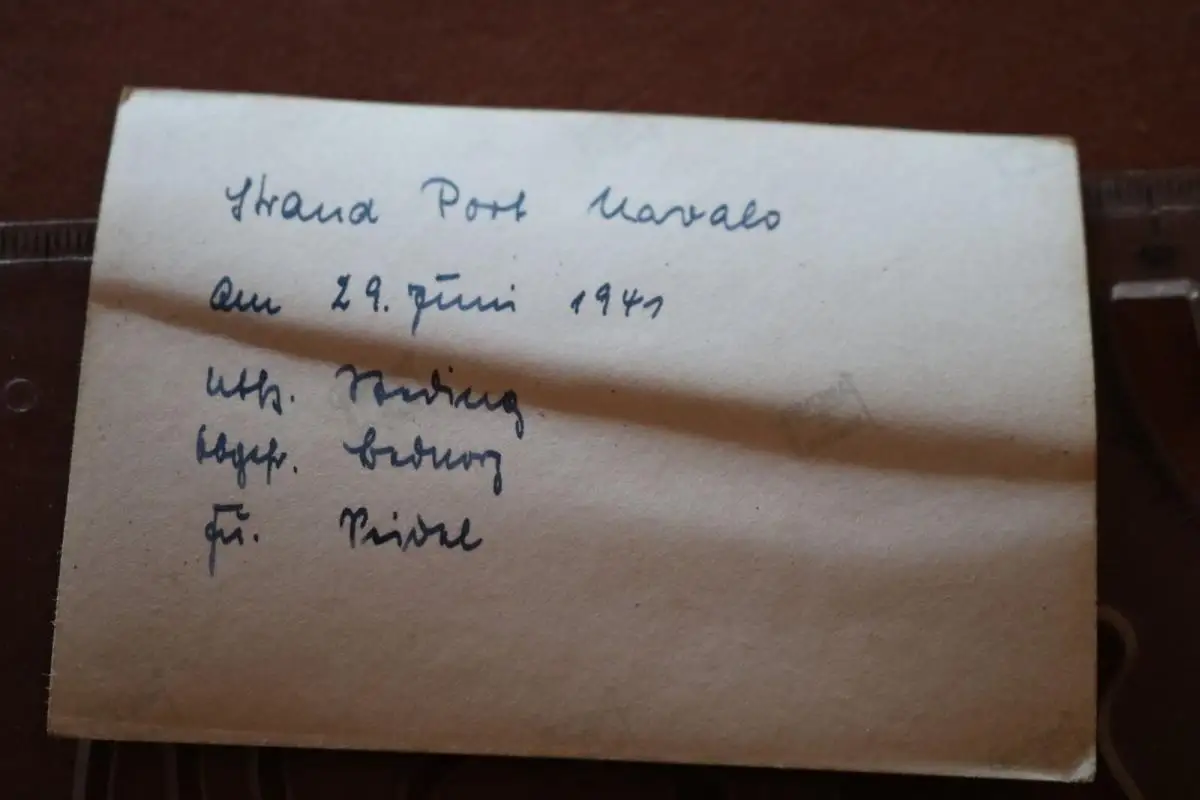 Strand Port Navalo
am 29. Juni 1941
Uffz.
Obgefr. Bednorz
Fu. Seidel